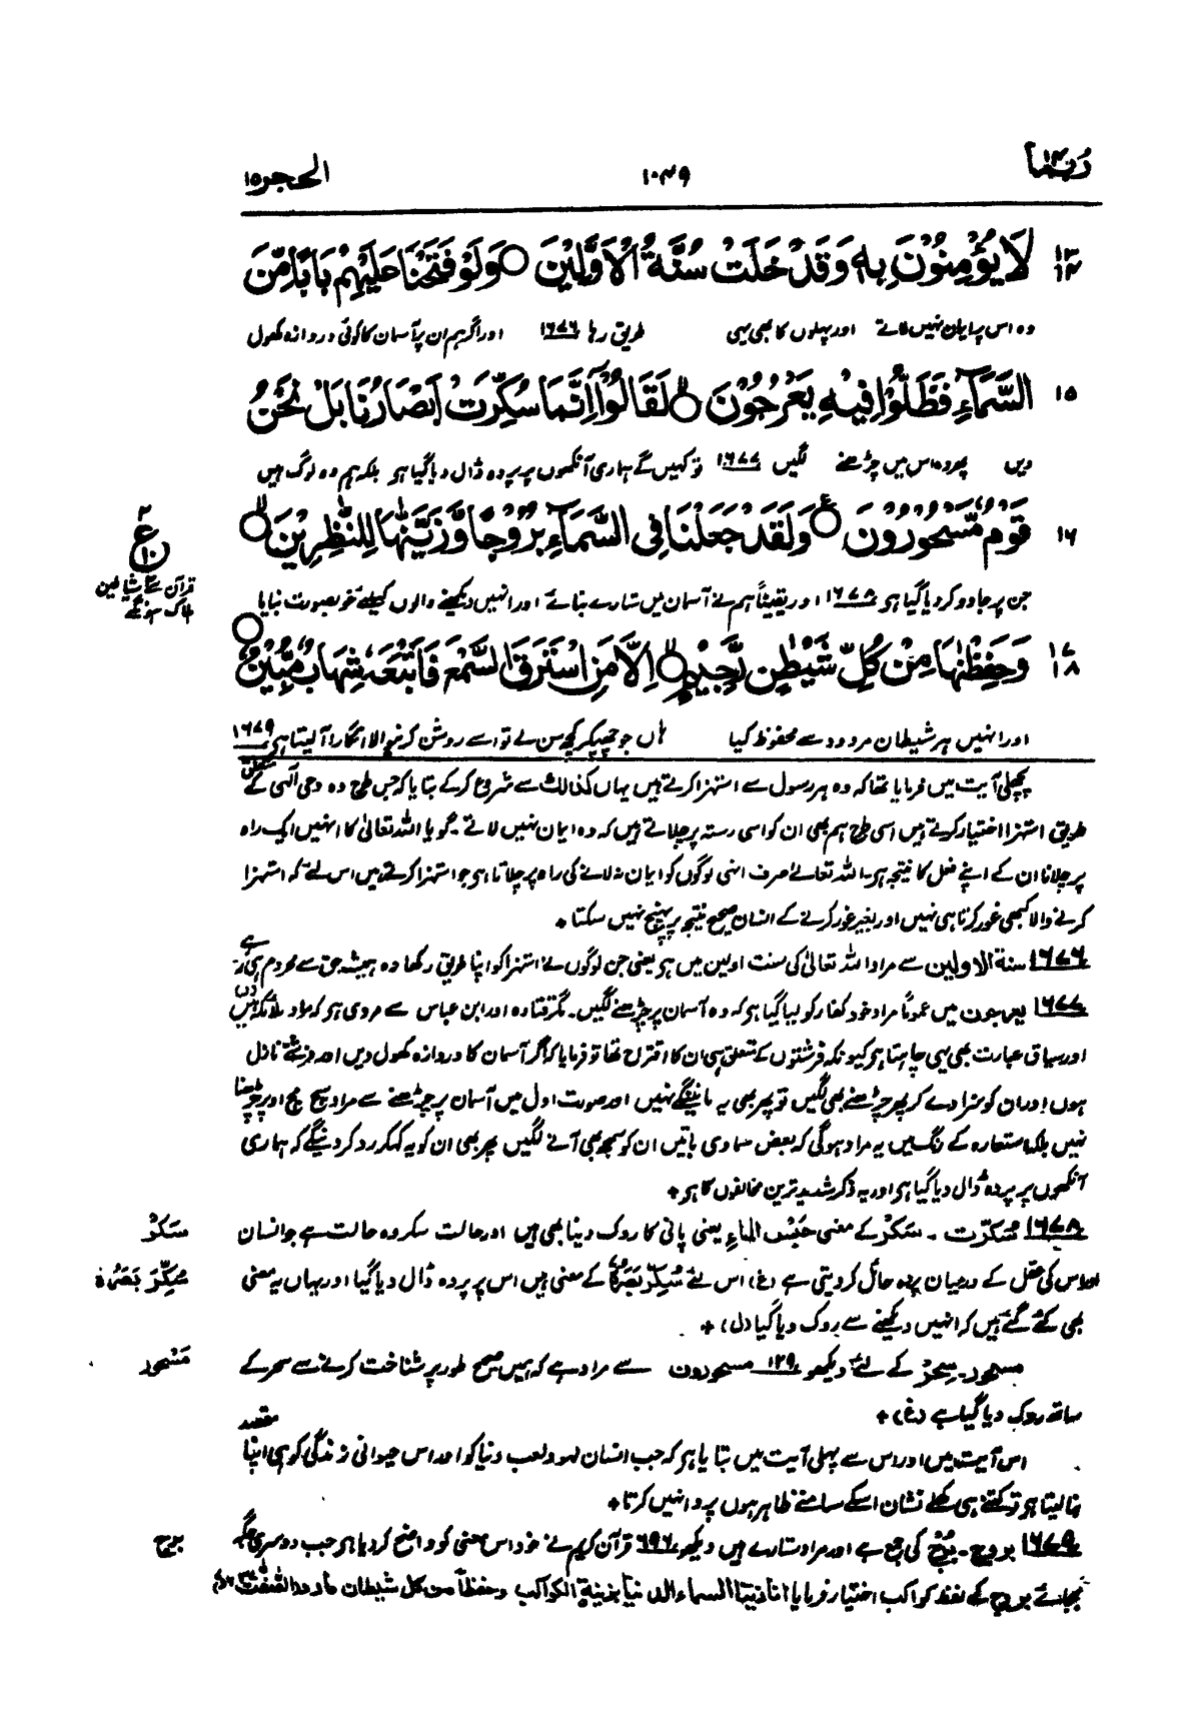 ربما ۱۴
۱۰۴۹
الحجر ۱۵
۱۳
۱۴
لَا يُؤْمِنُوْنَ بِهٖ وَقَدْ خَلَتْ سُنَّةُ الْاَوَّلِيْنَ ○ وَلَوْ فَتَحْنَا عَلَيْهِمْ بَابًا مِّنَ
وہ اس پر ایمان نہیں لاتے اور پہلوں کا بھی یہی طریق رہا ۱۶۷۶ اور اگر ہم ان پر آسمان کا کوئی دروازہ کھول
۱۵
السَّمَآءِ فَظَلُّوْا فِيْهِ يَعْرُجُوْنَ ○ لَقَالُوْٓا اِنَّمَا سُكِّرَتْ اَبْصَارُنَا بَلْ نَحْنُ
دیں پھر وہ اس میں چڑھنے لگیں ۱۶۷۷ تو کہیں گے ہماری آنکھوں پر پردہ ڈال دیا گیا ہو بلکہ ہم وہ لوگ ہیں
۱۶
قَوْمٌ مَّسْحُوْرُوْنَ ○ وَلَقَدْ جَعَلْنَا فِى السَّمَآءِ بُرُوْجًا وَّزَيَّنّٰهَا لِلنّٰظِرِيْنَ ○
۲
ع
قرآن سے شیاطین
ہلاک ہونگے
جن پر جادو کر دیا گیا ہو ۱۶۷۸ اور یقیناً ہم نے آسمان میں ستارے بنائے اور انہیں دیکھنے والوں کیلئے خوبصورت بنایا
۱۷
۱۸
وَحَفِظْنٰهَا مِنْ كُلِّ شَيْطٰنٍ رَّجِيْمٍ ○ اِلَّا مَنِ اسْتَرَقَ السَّمْعَ فَاَتْبَعَهٗ شِهَابٌ مُّبِيْنٌ ○
اور انہیں ہر شیطان مردود سے محفوظ کیا ہاں جو چھپکر کچھ سن لے تو اسے روشن کرنیوالا انگارا آلیتا ہی ۱۶۷۹
پچھلی آیت میں فرمایا تھا کہ وہ ہر رسول سے استہزا کرتے ہیں یہاں کذالک سے شروع کر کے بتایا کہ جس طرح وہ وحی الٰہی کے متعلق
طریق استہزا اختیار کرتے ہیں اسی طرح ہم بھی ان کو اسی رستہ پر چلاتے ہیں کہ وہ ایمان نہیں لاتے گویا اللہ تعالیٰ کا انہیں ایک راہ
پر چلانا ان کے اپنے فعل کا نتیجہ ہی۔ اللہ تعالےٰ صرف انہی لوگوں کو ایمان نہ لانے کی راہ پر چلاتا ہی جو استہزا کرتے ہیں اس لئے کہ استہزا
کرنے والا کبھی غور کرتا ہی نہیں اور بغیر غور کرنے کے انسان صحیح نتیجہ پر پہنچ نہیں سکتا +
۱۶۷۶ سنة الاولین سے مراد اللہ تعالیٰ کی سنت اولین میں ہو یعنی جن لوگوں نے استہزا کو اپنا طریق رکھا وہ ہمیشہ حق سے محروم ہی رہے
۱۶۷۷ یعرجون میں عموماً مراد خود کفار کو لیا گیا ہو کہ وہ آسمان پر چڑھنے لگیں۔ مگر قتادہ اور ابن عباس سے مروی ہو کہ مراد ملائکہ ہیں (ر)
اور سیاق عبارت بھی یہی چاہتا ہو کیونکہ فرشتوں کے متعلق ہی ان کا اقتراح تھا تو فرمایا کہ اگر آسمان کا دروازہ کھول دیں اور فرشتے نازل
ہوں اور ان کو سزا دے کر پھر چڑھنے بھی لگیں تو پھر بھی یہ مانینگے نہیں اور صورت اول میں آسمان پر چڑھنے سے مراد سچ مچ اوپر چڑھنا
نہیں بلکہ استعارہ کے رنگ میں یہ مراد ہوگی کہ بعض سماوی باتیں ان کو سمجھ بھی آنے لگیں پھر بھی ان کو یہ کہکر رد کر دینگے کہ ہماری
آنکھوں پر پردہ ڈال دیا گیا ہو اور یہ ذکر شدید ترین مخالفوں کا ہو +
۱۶۷۸ سکرت۔ سَکْر کے معنی حَبْس الماءِ یعنی پانی کا روک دینا بھی ہیں اور حالت سکر وہ حالت ہے جو انسان
سَکْر
اور اس کی عقل کے درمیان پردہ حائل کر دیتی ہے (غ) اس لئے سُكِّرَ بَصَرُهٗ کے معنی ہیں اس پر پردہ ڈال دیا گیا اور یہاں یہ معنی
سُكِّرَ بَصَرُهٗ
بھی کئے گئے ہیں کہ انہیں دیکھنے سے روک دیا گیا (ل) +
مسحور۔ سِحْر کے لئے دیکھو ۱۲۹ مسحورون سے مراد ہے کہ ہمیں صحیح طور پر شناخت کرنے سے سحر کے
مَسْحور
ساتھ روک دیا گیا ہے (غ) +
اس آیت میں اور اس سے پہلی آیت میں بتایا ہو کہ جب انسان لہو و لعب دنیا کو اور اس حیوانی زندگی کو ہی اپنا مقصد
بنا لیتا ہو تو کتنے ہی کھلے نشان اسکے سامنے ظاہر ہوں پروا نہیں کرتا +
۱۶۷۹ بروج۔ بُرْج کی جمع ہے اور مراد ستارے ہیں دیکھو ۶۹۶ قرآن کریم نے خود اس معنی کو واضح کر دیا ہو جب دوسری جگہ
برج
بجائے بروج کے لفظ کواکب اختیار فرمایا انا زینا السماء الدنیا بزینة الکواکب وحفظاً من کل شیطان مارد (الصّٰفّٰت